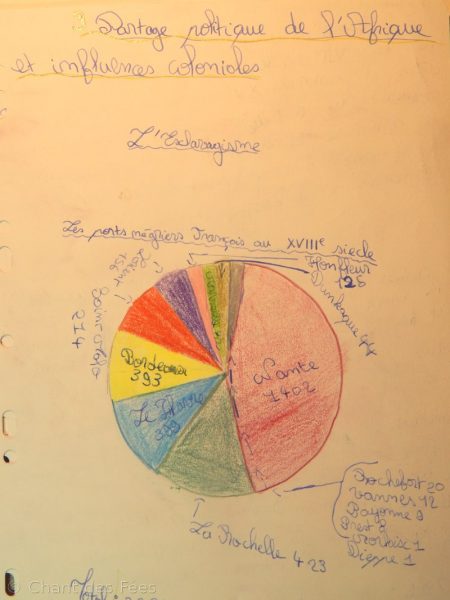 Partage politique de l'Afrique
et influences coloniales
L'Esclavagisme
Les ports négriers Français au XVIIIe siècle
Honfleur
126
Dunkerque
Lorient
156
Saint Malo
214
Bordeaux
393
Nante
1402
Le Havre
399
La Rochelle 423
Rochefort 20
Vannes 12
Bayonne 9
Brest
1
Dieppe 1
Total :
© Chant des Fées